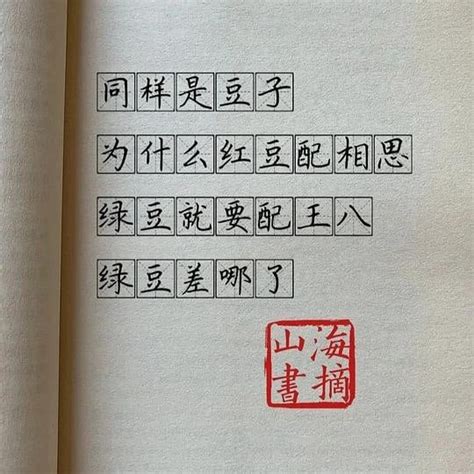 同样是豆子
为什么红豆配相思
绿豆就要配王八
绿豆差哪了
山海
書摘